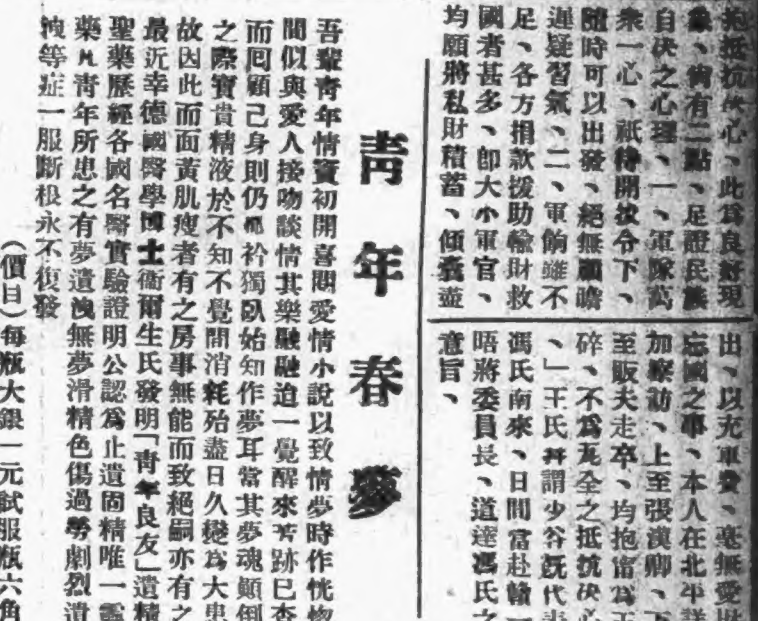 抵抗決心、此爲良好現
象、尙有二點、足證民族
自决之心理、一、軍隊萬
衆一心、祇待開拔令下、
隨時可以出發、絕無顧瞻
遲疑習氣、二、軍餉雖不
足、各方捐欵援助輸財救
國者甚多、卽大小軍官、
均願將私財積蓄、傾囊盡
出、以充軍費、毫無愛
忘國之事、本人在北平詳
加察訪、上至張漢卿、下
至販夫走卒、均抱甯爲玉
碎、不爲瓦全之抵抗決心
、」王氏幷謂少谷旣代表
馮氏南來、日間當赴贛一
晤蔣委員長、道達馮氏之
意旨、
靑年春夢
吾輩靑年情竇初開喜閱愛情小說以致情夢時作恍惚
間似與愛人接吻談情其樂融融迨一覺醒來芳跡已杳
而囘顧己身則仍衾獨臥始知作夢耳當其夢魂顚倒
之際寶貴精液於不知不覺間消耗殆盡日久變爲大患
故因此而面黃肌瘦者有之房事無能而致絕嗣亦有之
最近幸德國醫學博士衞爾生氏發明「靑年良友」遺精
聖藥歷經各國名醫實驗證明公認爲止遺固精唯一靈
藥凡靑年所患之有夢遺洩無夢滑精色傷過勞劇烈遺
洩等症一服斷根永不復發
(價目)每瓶大銀一元試服瓶六角